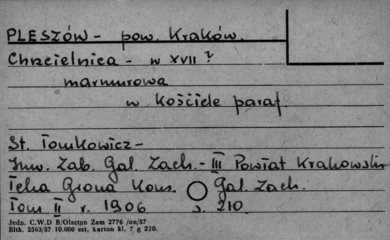 PLESZÓW - pow. Kraków.
Chrzcielnica - w XVII ?
marmurowa
w kościele paraf.
St. Tomkowicz -
Inw. Zab. Gal. Zach. - III Powiat Krakowski
Teka Grona Kons. Gal. Zach.
Tom II r. 1906 s. 210.
Jedn. C.W.D B/Olsztyn Zam 2776 /oz/57
Bltk. 2563/57 10.000 szt. karton kl. 7 g 220.